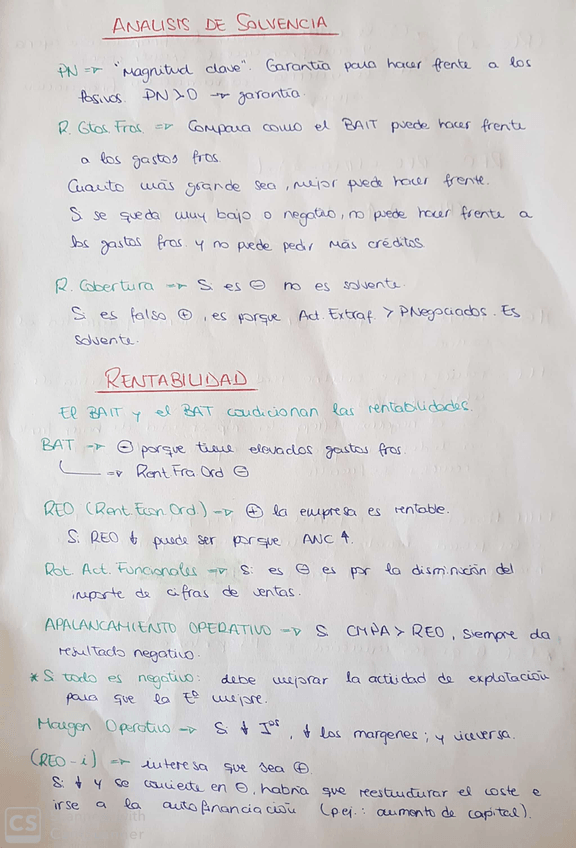 ANALISIS DE SOLVENCIA
PN => "Magnitud clave". Garantía para hacer frente a los
Pasivos. PN > 0 → garantía.
R. Gtos Fros. => Compara como el BAIT puede hacer frente
a los gastos fros.
Cuanto más grande sea, mejor puede hacer frente.
Si se queda muy bajo o negativo, no puede hacer frente a
los gastos fros y no puede pedir más créditos
R. Cobertura → Si es ⊖ no es solvente.
Si es falso ⊕, es porque Act. Extraf. > PNegociados. Es
solvente.
RENTABILIDAD
El BAIT y el BAT condicionan las rentabilidades.
BAT → ⊖ porque tiene elevados gastos fros.
=> Rent Fra Ord ⊖
REO (Rent. Econ. Ord.) → ⊕ la empresa es rentable.
Si REO ↓ puede ser porque ANC ↑.
Rot. Act. Funcionales → Si es ⊖ es por la disminución del
importe de cifras de ventas.
APALANCAMIENTO OPERATIVO → Si CMPA > REO, siempre da
resultado negativo.
* Si todo es negativo: debe mejorar la actividad de explotación
para que la Eª mejore.
Margen Operativo → Si ↓ Iºˢ, ↓ los margenes; y viceversa.
(REO - i) => interesa que sea ⊕.
Si ↓ y se convierte en ⊖, habría que reestructurar el coste e
irse a la autofinanciación (p.ej.: aumento de capital).
CS